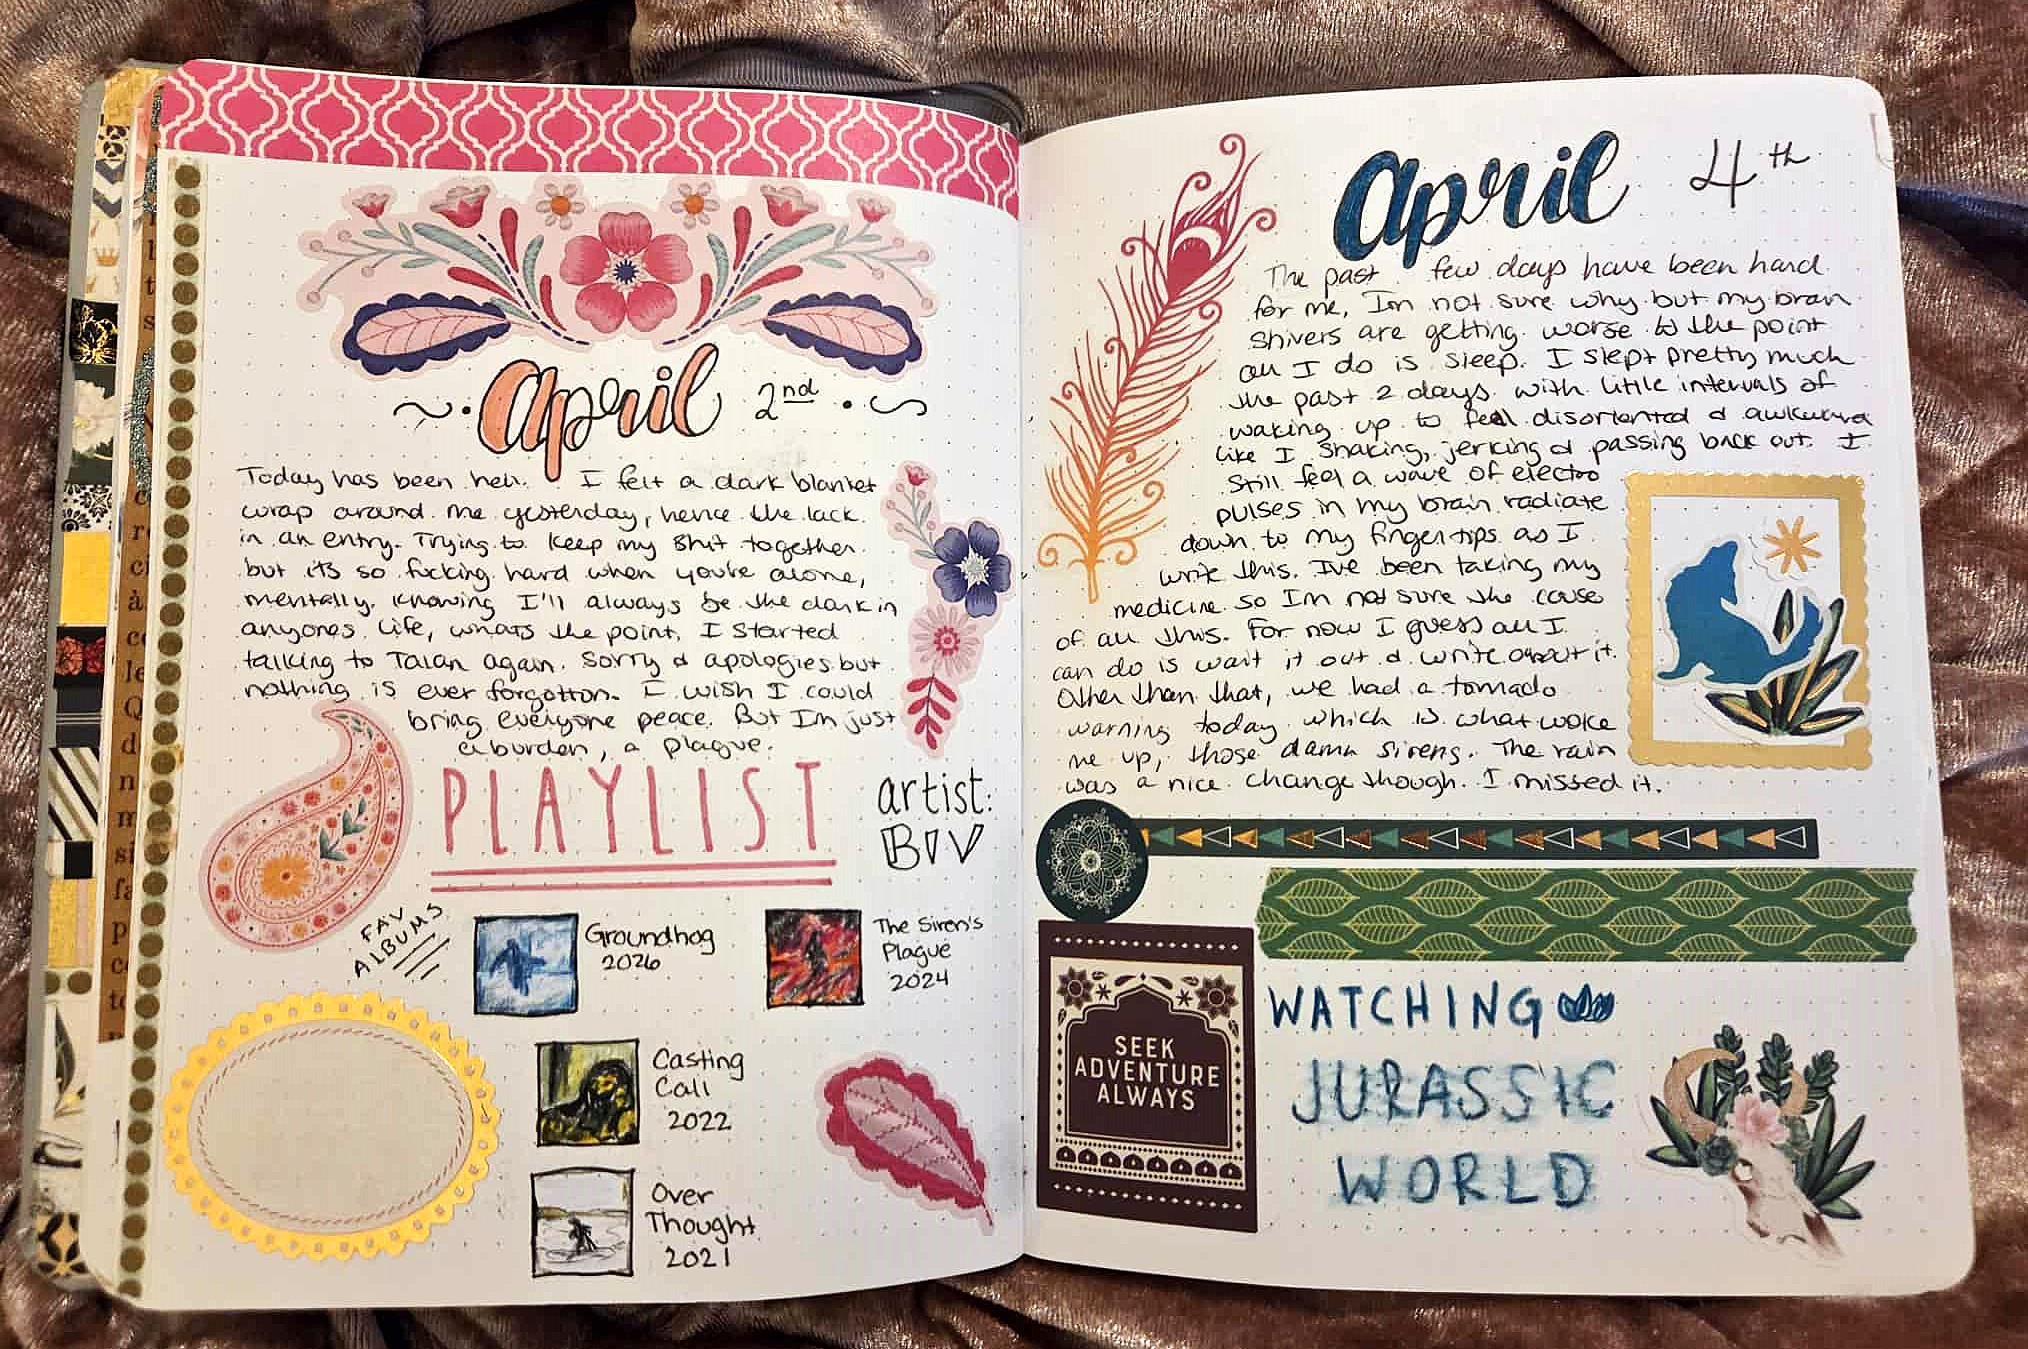 April 2nd
Today has been hell. I felt a dark blanket
wrap around me yesterday, hence the lack
in an entry. Trying to keep my shit together
but its so fucking hard when you're alone,
mentally. Knowing I'll always be the dark in
anyones life, whats the point. I started
talking to Talan again. Sorry & apologies but
nothing is ever forgotton. I wish I could
bring everyone peace. But Im just
a burden, a plague.
PLAYLIST
artist:
BIV
FAV
ALBUMS
Groundhog
2026
The Siren's
Plague
2024
Casting
Call
2022
Over
Thought
2021
April 4th
The past few days have been hard
for me, Im not sure why but my brain
shivers are getting worse to the point
all I do is sleep. I slept pretty much
the past 2 days with little intervals of
waking up to feel disoriented & awkward
like I shaking, jerking & passing back out. I
still feel a wave of electro
pulses in my brain radiate
down to my fingertips as I
write this. Ive been taking my
medicine so Im not sure the cause
of all this. For now I guess all I
can do is wait it out & write about it.
Other than that, we had a tornado
warning today which is what woke
me up, those damn sirens. The rain
was a nice change though. I missed it.
SEEK
ADVENTURE
ALWAYS
WATCHING
JURASSIC
WORLD